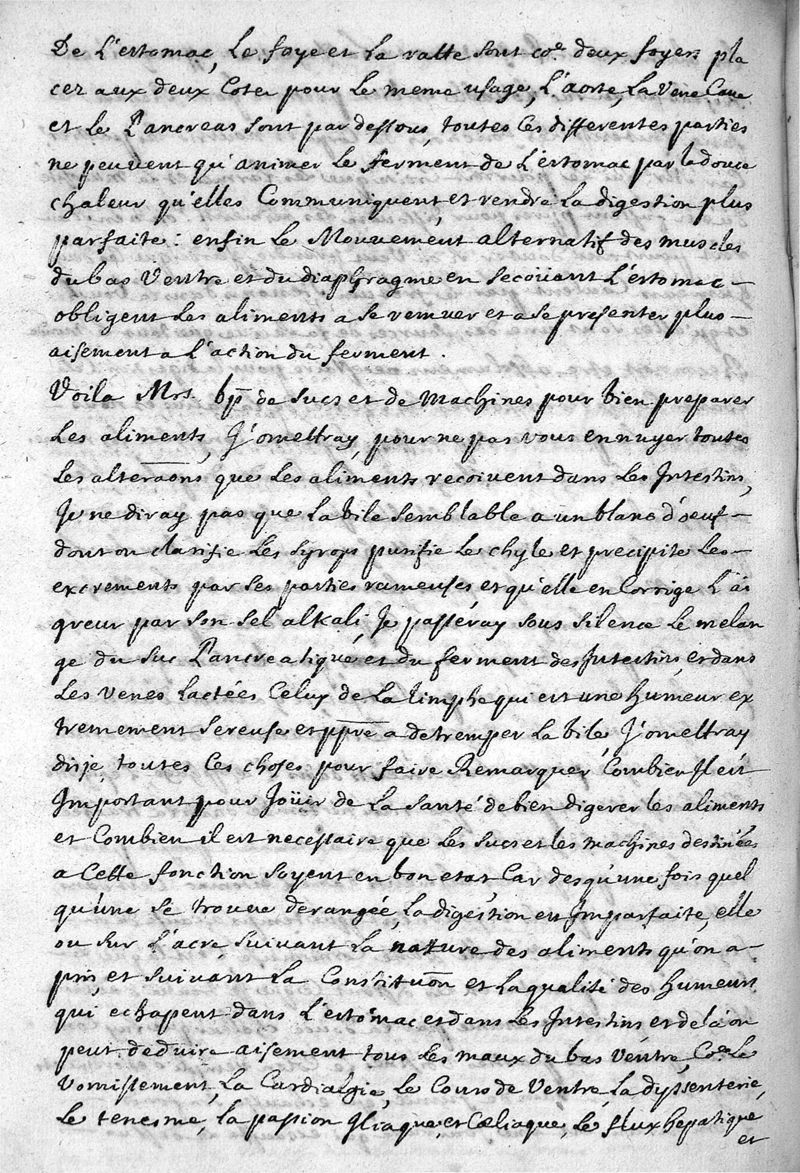 De L'estomac, Le foye et La ratte sont co.e deux foyers pla
cez aux deux Cotez pour Le meme usage, L'aorte, La Vene Cave
et Le Pancreas sont par dessous, toutes Ces differentes parties
ne peuvent qu'animer Le ferment de L'estomac par la douce
chaleur qu'elles Communiquent, et rendre La digestion plus
parfaite : enfin Le Mouvement alternatif des muscles
du bas Ventre et du diaphragme en secoüant L'estomac –
obligent Les aliments a se remuer et a se presenter plus –
aisement a L'action du ferment .
Voila Mrs. bp de sucs et de Machines pour bien preparer
Les aliments, J'omettray, pour ne pas vous ennuyer toutes
Les alteraons que Les aliments recoivent dans Les Intestins,
Je ne diray pas que La bile semblable a un blanc d'oeuf –
dont on clarifie Les Syrops purifie Le chyle et precipite Les –
excrements par ses parties rameuses et qu'elle en Corrige L'ai
greur par son sel alkali, Je passeray sous silence Le melan
ge du suc Pancreatique et du ferment des Intestins et dans
Les Venes Lactées Celuy de La Limphe qui est une humeur ex
tremement sereuse et ppre a detremper La bile, J'omettray
disje toutes Ces choses pour faire Remarquer Combien Il est
Important pour Joüir de La Santé de bien digerer les aliments
et Combien il est necessaire que Les sucs et les machines destinées
a Cette fonction soyent en bon etat Car des qu'une fois quel
qu'une se trouve derangée, La digestion est Imparfaite, elle
ou sur L'acre, suivant La nature des aliments qu'on a –
pris et suivant La Constituon et La qualité des humeurs
qui echapent dans L'estomac et dans Les Intestins et de là on
peut deduire aisement tous Les maux du bas Ventre, Co.e Le
Vomissement, La Cardialgie, Le Cours de Ventre, La dyssenterie,
Le tenesme, La passion Iliaque, et Cœliaque, Le flux hepatique
et